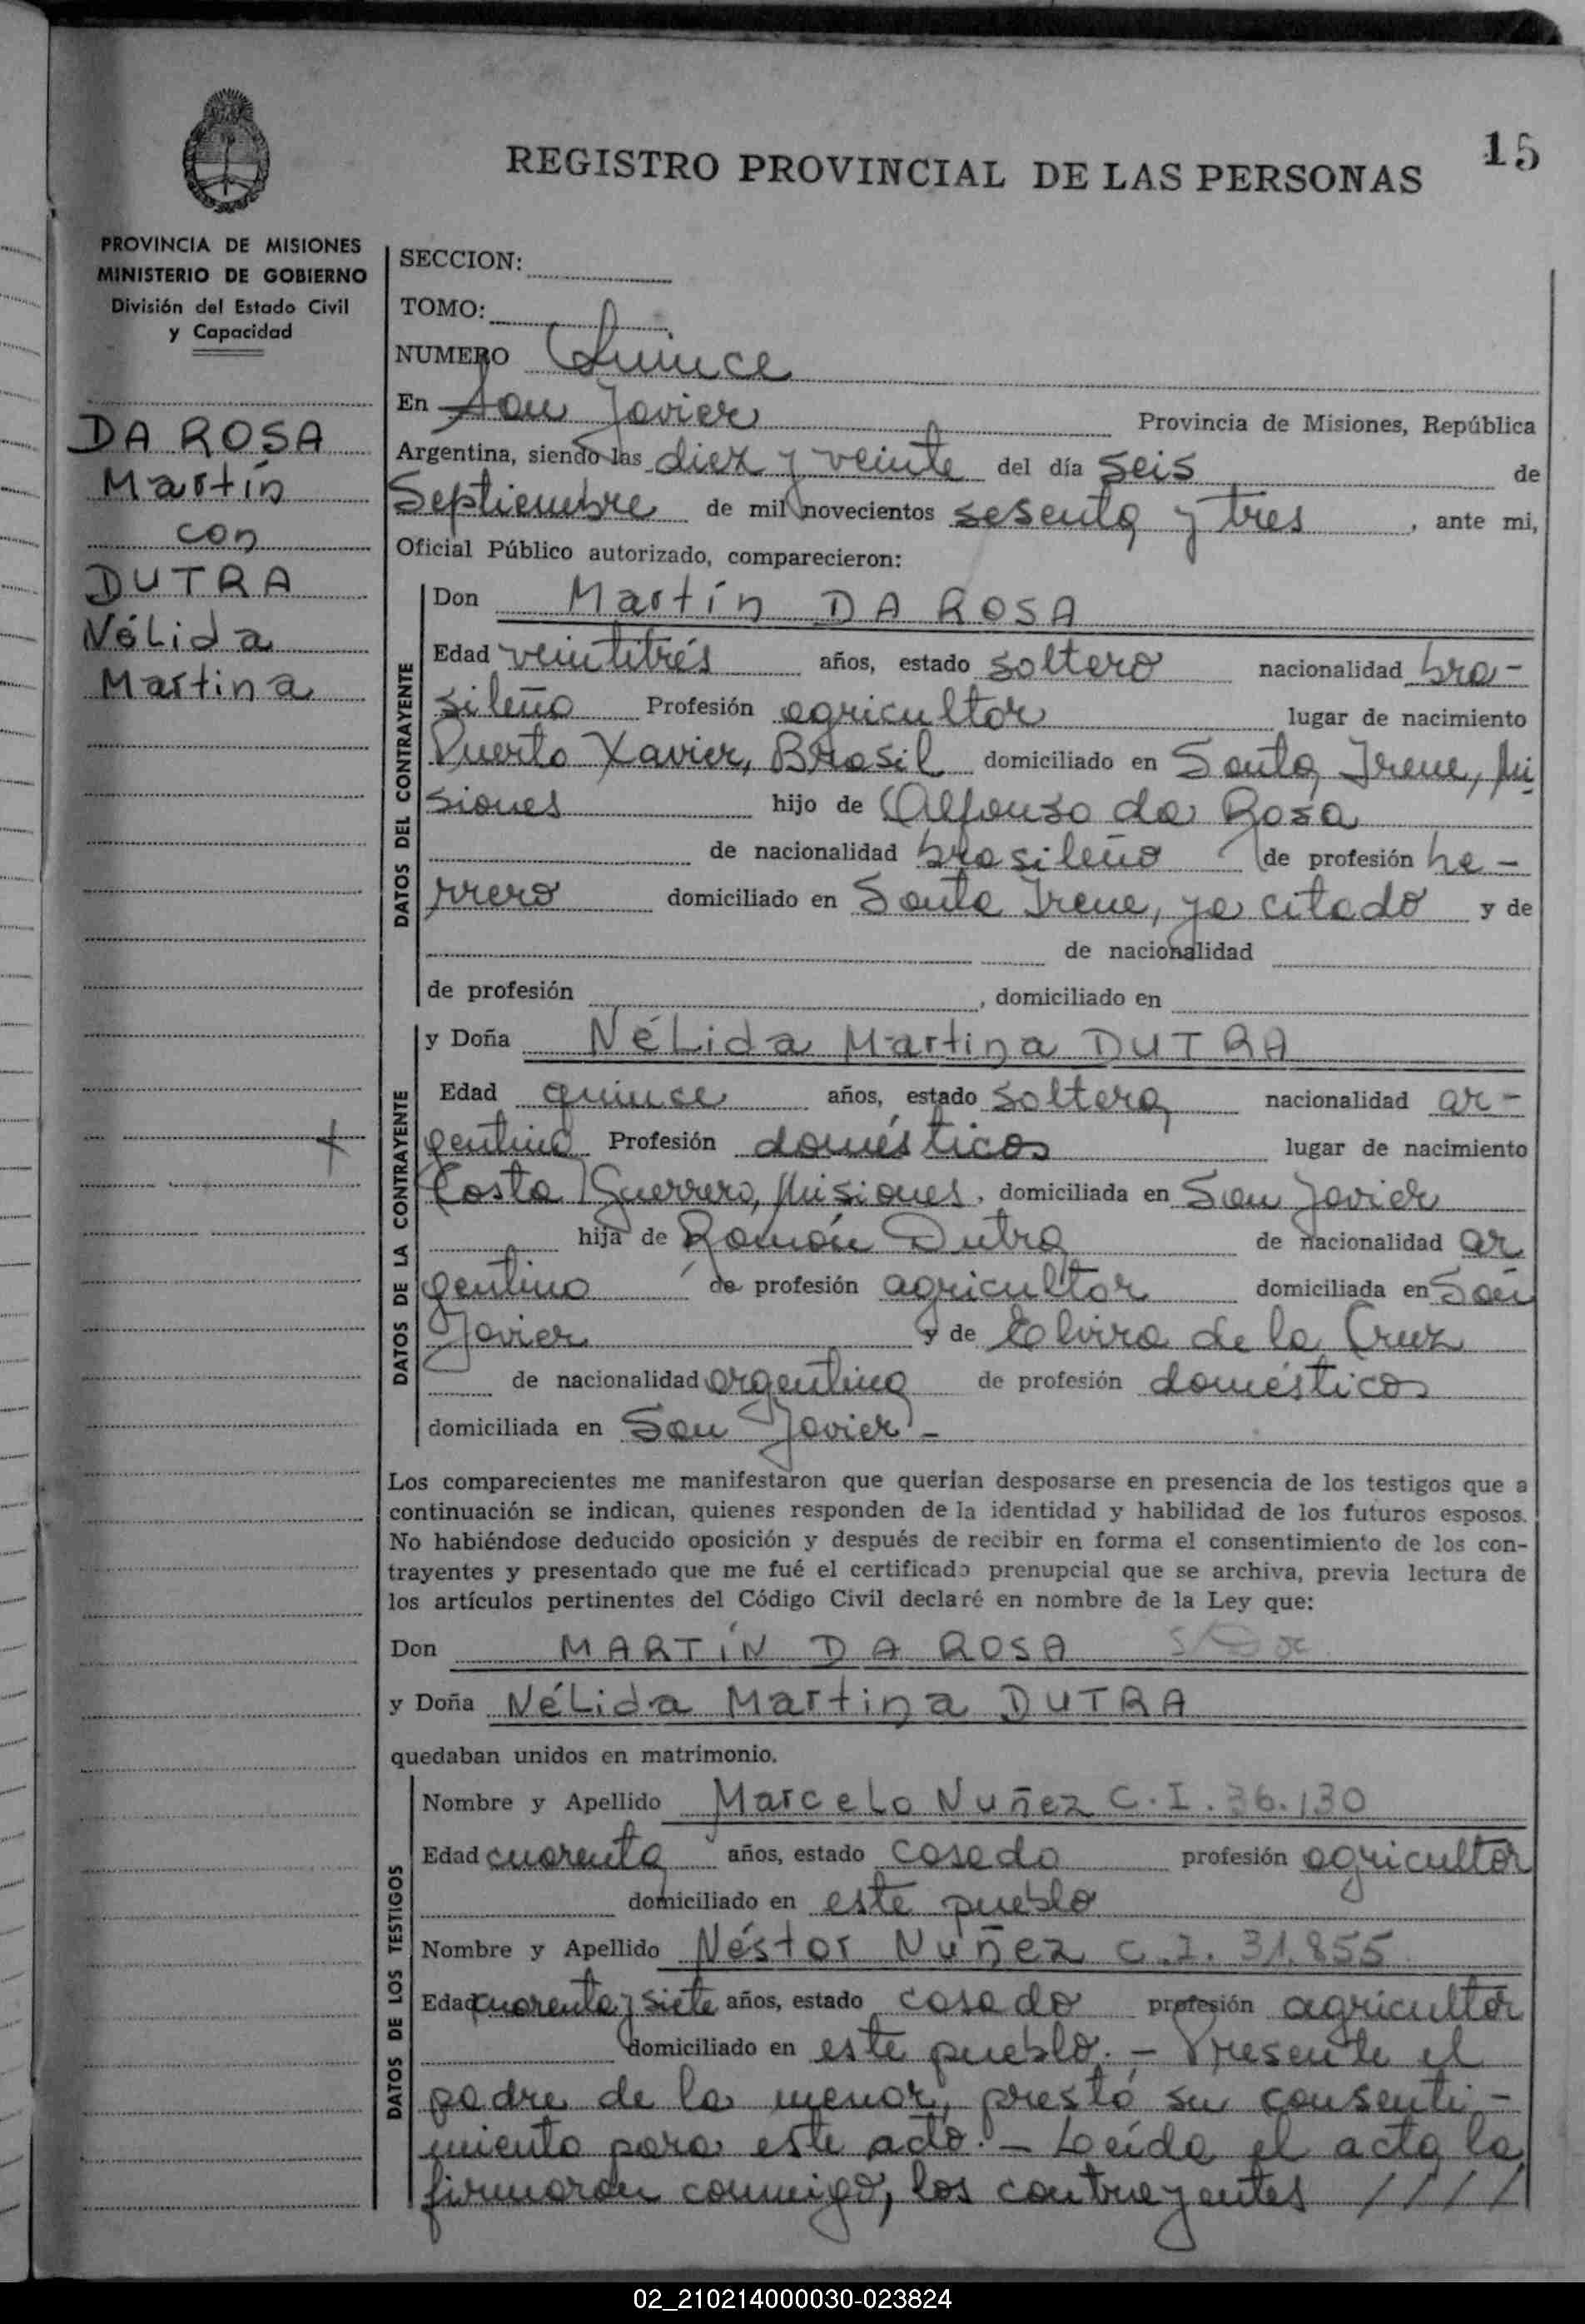 15
REGISTRO PROVINCIAL DE LAS PERSONAS
PROVINCIA DE MISIONES
MINISTERIO DE GOBIERNO
División del Estado Civil
y Capacidad
DA ROSA
Martín
con
DUTRA
Nélida
Martina
SECCION:
TOMO:
NUMERO Quince
En San Javier Provincia de Misiones, República
Argentina, siendo las diez y veinte del día seis de
Septiembre de mil novecientos sesenta y tres, ante mi,
Oficial Público autorizado, comparecieron:
DATOS DEL CONTRAYENTE
Don Martín DA ROSA
Edad veintitrés años, estado soltero nacionalidad bra-
sileño Profesión agricultor lugar de nacimiento
Puerto Xavier, Brasil domiciliado en Santa Irene, Mi
siones hijo de Alfonso da Rosa
de nacionalidad brasileño de profesión he-
rrero domiciliado en Santa Irene, ya citado y de
de nacionalidad
de profesión , domiciliado en
DATOS DE LA CONTRAYENTE
y Doña Nélida Martina DUTRA
Edad quince años, estado soltera nacionalidad ar-
gentina Profesión domésticos lugar de nacimiento
Costa Guerrero, Misiones, domiciliada en San Javier
hija de Ramón Dutra de nacionalidad ar
gentino de profesión agricultor domiciliada en San
Javier y de Elvira de la Cruz
de nacionalidad argentina de profesión domésticos
domiciliada en San Javier -
Los comparecientes me manifestaron que querían desposarse en presencia de los testigos que a
continuación se indican, quienes responden de la identidad y habilidad de los futuros esposos.
No habiéndose deducido oposición y después de recibir en forma el consentimiento de los con-
trayentes y presentado que me fué el certificado prenupcial que se archiva, previa lectura de
los artículos pertinentes del Código Civil declaré en nombre de la Ley que:
Don MARTÍN DA ROSA
y Doña Nélida Martina DUTRA
quedaban unidos en matrimonio.
DATOS DE LOS TESTIGOS
Nombre y Apellido Marcelo Nuñez C.I. 36.130
Edad cuarenta años, estado casado profesión agricultor
domiciliado en este pueblo
Nombre y Apellido Néstor Nuñez C.I. 31.855
Edad cuarenta y siete años, estado casado profesión agricultor
domiciliado en este pueblo. - Presente el
padre de la menor, prestó su consenti-
miento para este acto. - Leída el acta la
firmaron conmigo, los contrayentes ////
02_210214000030-023824